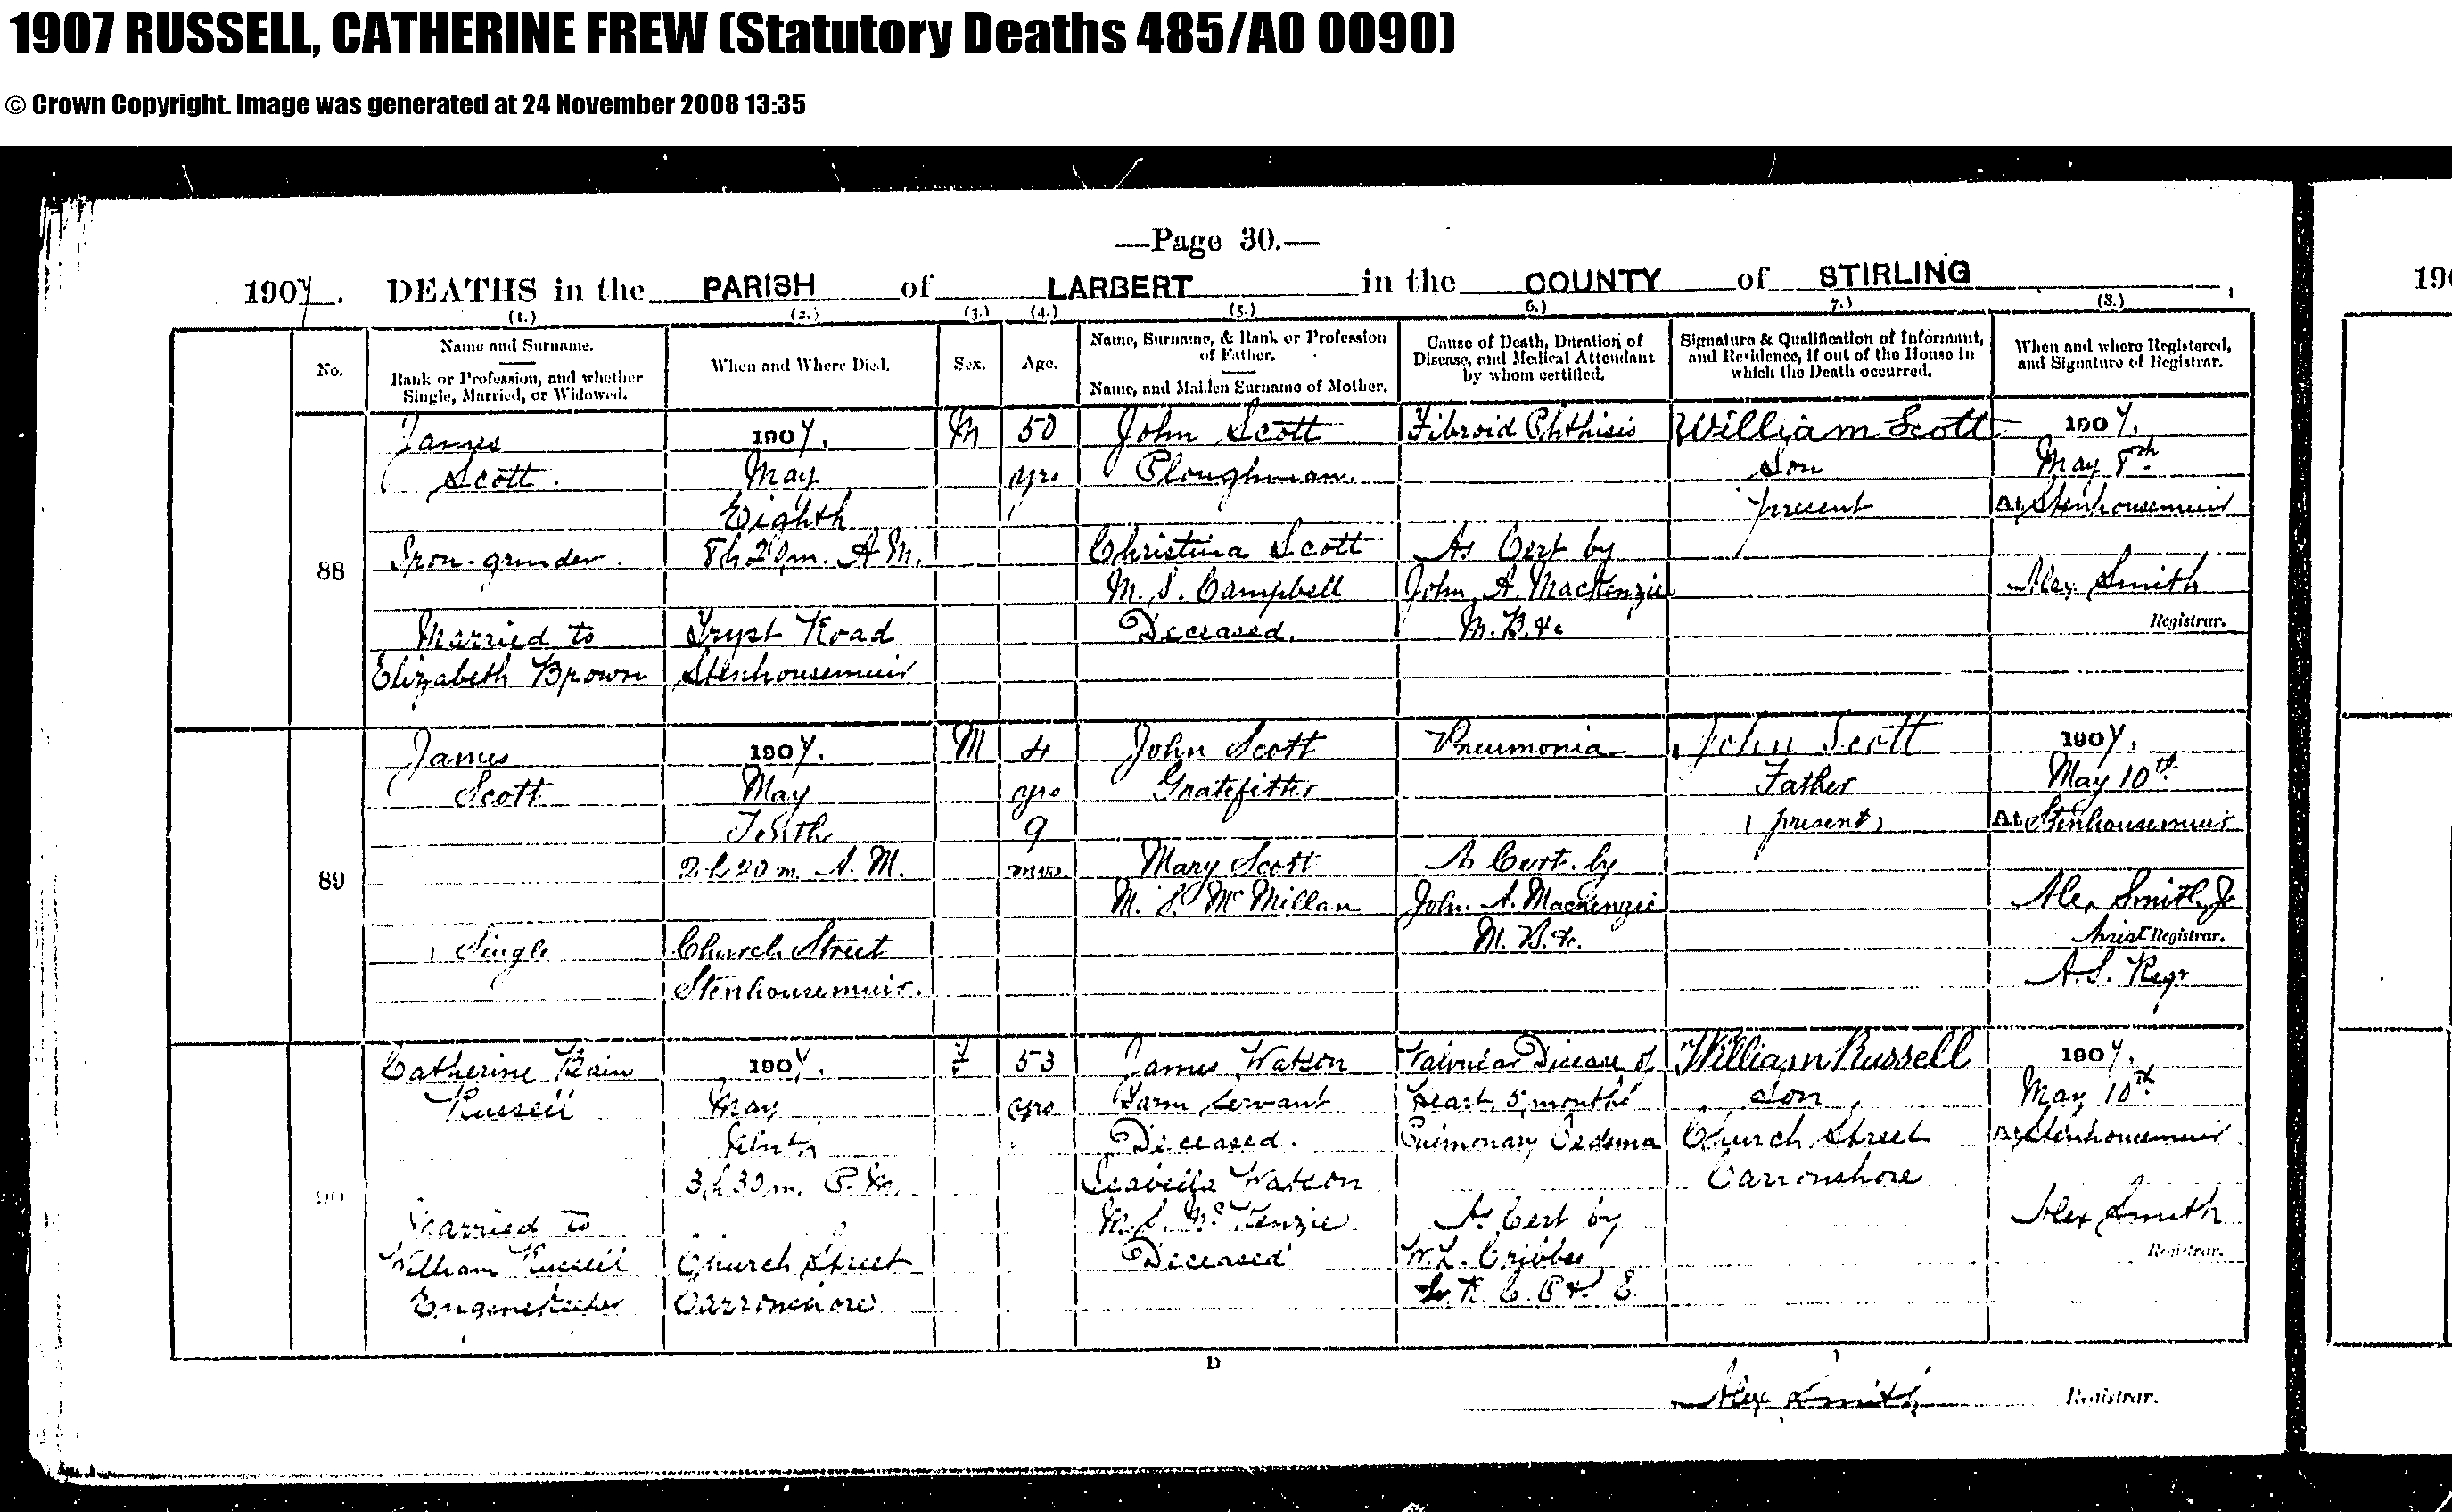 1907 RUSSELL, CATHERINE FREW (Statutory Deaths 485/AO 0090)
© Crown Copyright. Image was generated at 24 November 2008 13:35
—Page 30.—
1907. DEATHS in the PARISH of LARBERT in the COUNTY of STIRLING,
190
(1.) (2.) (3.) (4.) (5.) 6.) 7.) (8.)
No.
Name and Surname.
Rank or Profession, and whether
Single, Married, or Widowed.
When and Where Died.
Sex.
Age.
Name, Surname, & Rank or Profession
of Father.
Name, and Maiden Surname of Mother.
Cause of Death, Duration of
Disease, and Medical Attendant
by whom certified.
Signature & Qualification of Informant,
and Residence, if out of the House in
which the Death occurred.
When and where Registered,
and Signature of Registrar.
88
James
Scott.
Iron-grinder.
Married to
Elizabeth Brown
1907.
May
Eighth
8h 20m. A.M.
Tryst Road
Stenhousemuir
M
50
yrs
John Scott
Ploughman.
Christina Scott
M.S. Campbell
Deceased.
Fibroid Phthisis
As Cert by
John A. MacKenzie
M.B.&c
William Scott
Son
present
1907.
May 8th
At Stenhousemuir
Alex Smith
Registrar.
89
James
Scott
Single
1907.
May
Tenth
2h 20m. A.M.
Church Street
Stenhousemuir.
M
4
yrs
9
mos.
John Scott
Gratefitter
Mary Scott
M.S. McMillan
Pneumonia
As Cert. by
John. A. Mackenzie
M.B.&c.
John Scott
Father
present
1907.
May 10th
At Stenhousemuir
Alex Smith Jr
Assist Registrar.
A.S. Regr
90
Catherine Bain
Russell
Married to
William Russell
Enginekeeper
1907.
May
3h 30m. P.M.
Church Street
Carronshore
F
53
yrs
James Watson
Farm Servant
Deceased.
Isabella Watson
M.S. McKenzie
Deceased
Valvular Disease of
Heart, 5 months
Pulmonary Oedema
As Cert by
W.L. Cribbes
L.R.C.P. & S. E.
William Russell
Son
Church Street
Carronshore
1907.
May 10th
At Stenhousemuir
Alex Smith
Registrar.
D
Alex Smith Registrar.